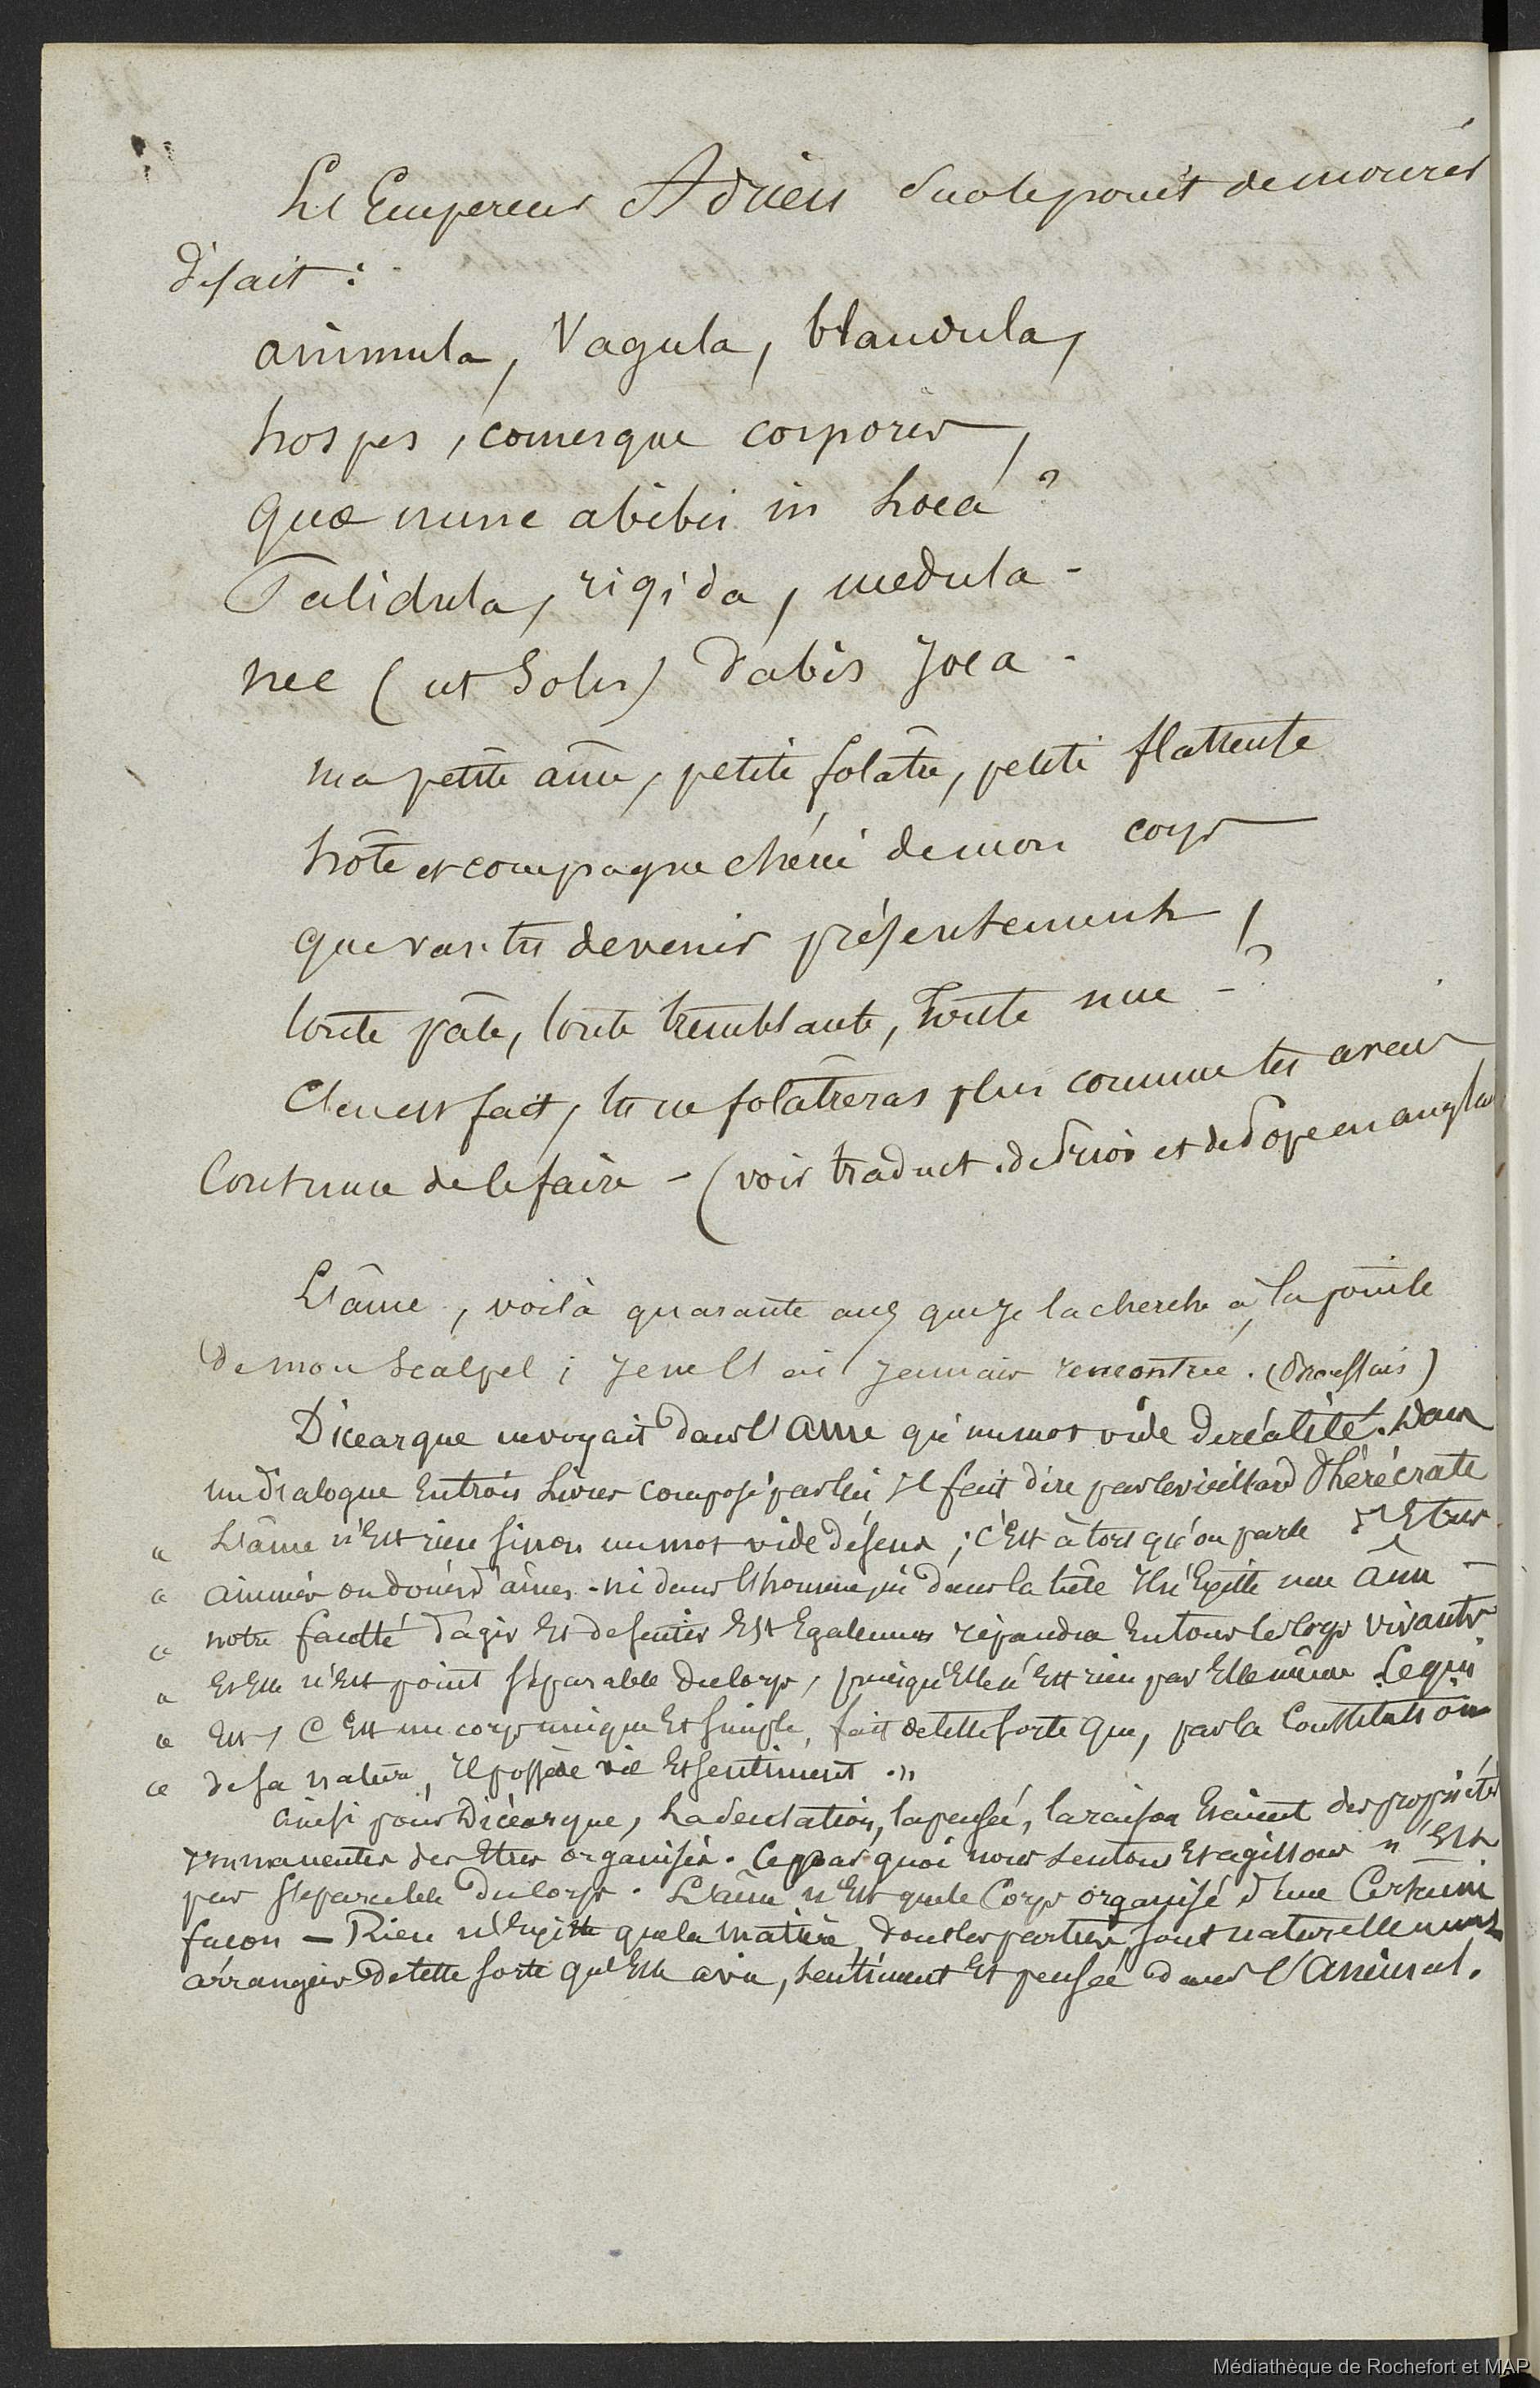 L'Empereur Adrien sur le point de mourir
disait :
animula, Vagula, blandula,
hospes, comesque corporis,
quæ nunc abibis in loca ?
Palidula, rigida, nudula -
nec (ut Soles) dabis Joca -
ma petite âme, petite folâtre, petite flatteuse
hôte et compagne chérie de mon corps
que vas-tu devenir présentement,
toute pâle, toute tremblante, toute nue - ?
C'en est fait, tu ne folâtreras plus comme tu avais
Coutume de le faire - (voir traduct. de Prior et de Pope en anglais
L'âme, voilà quarante ans que je la cherche à la pointe
de mon scalpel ; je ne l'ai jamais rencontrée. (Broussais)
Dicearque ne voyait dans l'ame qu'un mot vide de réalité. Dans
un dialogue en trois Livres composé par lui, il fait dire par le vieillard Phérécrate
« L'âme n'Est rien sinon un mot vide de sens ; c'Est à tort qu'on parle d'Etres
« animés ou doués d'âmes - ni dans l'homme, ni dans la bête il n'Existe une âme -
« notre faculté d'agir Et de sentir Est Egalement répandue En tous les corps vivants
« Et Elle n'Est point séparable du corps, puisqu'Elle n'Est rien par Elle même. Ce qui
« Est, C'Est un corps unique Et simple, fait de telle sorte que, par la Constitution
« de sa nature, il possède vie Et sentiment. »
ainsi pour Dicéarque, la sensation, la pensée, la raison Etaient des propriétés
immanentes des Etres organisés. Ce par quoi nous sentons Et agissons n'Est
pas séparable du corps. L'âme n'Est que le Corps organisé d'une Certaine
façon — Rien n'Existe que la matière, dont les parties sont naturellement
arrangées de telle sorte qu'Elle a vie, sentiment Et pensée dans l'Animal.
Médiathèque de Rochefort et MAP